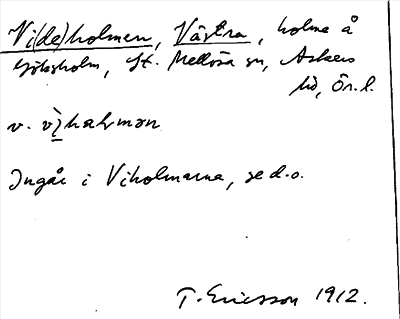 Vi(de)holmen, Västra, holme å
Göksholm, St. Mellösa sn, Askers
hd, Ör. l.
v. vìholmən
Ingår i Viholmarna, se d.o.
T. Ericsson 1912.